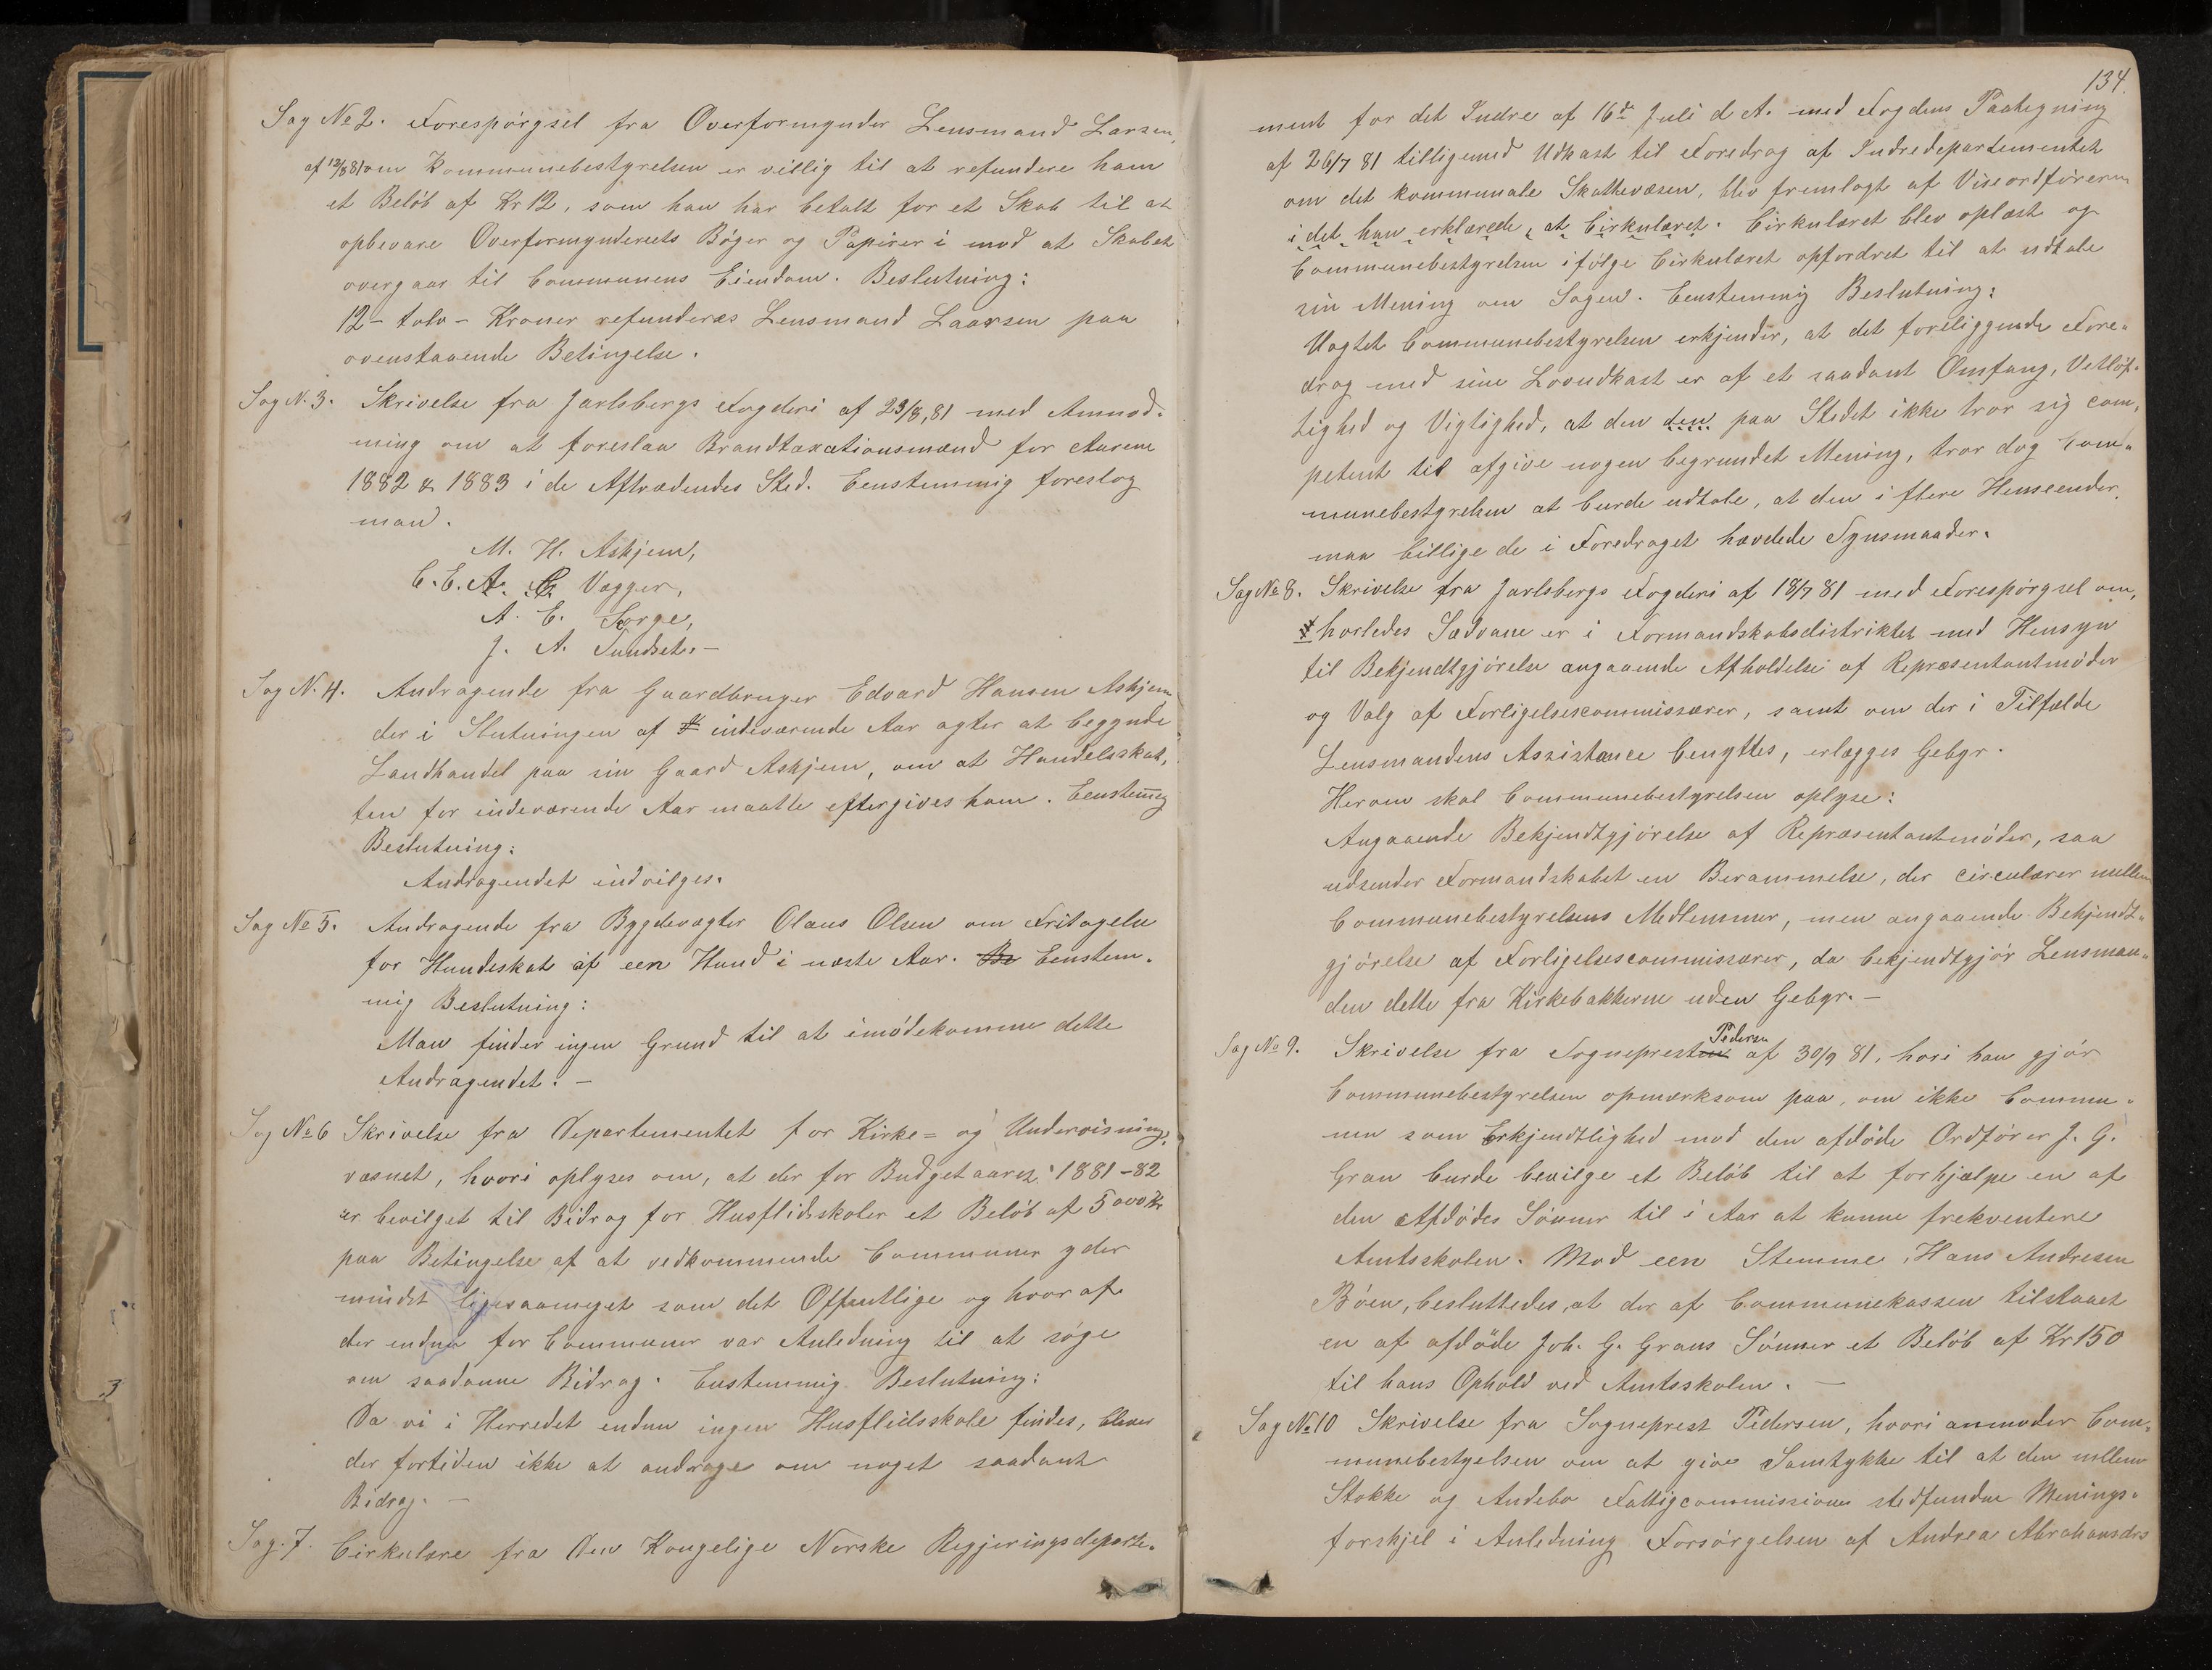 Sag No 2. Forespørgsel fra Overformynder Lensmand Larsen,
af 12/8 81 om Kommunebestyrelsen er villig til at refundere ham
et Beløb af Kr 12, som han har betalt for et Skab til at
opbevare Overformynderiets Bøger og Papirer i mod at Skabet
overgaar til Communens Eiendom. Beslutning:
12 - tolv - Kroner refunderes Lensmand Laarsen paa
ovenstaaende Betingelse.
Sag N. 3. Skrivelse fra Jarlsbergs Fogderi af 23/8, 81 med Anmod-
ning om at foreslaa Brandtaxationsmænd for Aarene
1882 & 1883 i de Aftrædendes Sted. Eenstemmig foreslog
man.
M. H. Askjem,
C. E. A. Vegger,
A. E. Sørge,
J. A. Sundset. -
Sag N. 4. Andragende fra Gaardbruger Edvard Hansen Askjem
der i Slutningen af indeværende Aar agter at begynde
Landhandel paa sin Gaard Askjem, om at Handelsskat,
ten for indeværende Aar maatte eftergives ham. Eenstemig
Beslutning:
Andragendet indvilges.
Sag No 5. Andragende fra Bygdevægter Olaus Olsen om Fritagelse
for Hundeskat af een Hund i næste Aar. Be Eenstem-
mig Beslutning:
Man finder ingen Grund til at imødekomme dette
Andragendet. -
Sag No 6 Skrivelse fra Departementet for Kirke= og Undervisnings
væsnet, hvori oplyses om, at der for Budgetaaret 1881-82
er bevilget til Bidrag for Husflidsskoler et Beløb af 5000 Kr
paa Betingelse af at vedkommende Communer yder
mindst ligesaameget som det Offentlige og hvoraf
der endnu for Communer var Anledning til at søge
om saadanne Bidrag. Enstemmig Beslutning:
Da vi i Herredet endnu ingen Husflidsskole findes, bliver
der fortiden ikke at andrage om noget saadant
Bidrag. -
Sag. 7. Cirkulære fra Den Kongelige Norske Regjeringsdeparte-
134.
ment for det Indre af 16de Juli d. A. med Fogdens Paategning
af 26/7 81 tilligemed Udkast til Foredrag af Indredepartementet
om det kommunale Skattevæsen, blev fremlagt af Viseordføreren
i det han erklærede, at Cirkulæret. Cirkulæret blev oplæst og
Communebestyrelsen ifølge Cirkulæret opfordret til at udtale
sin Mening om Sagen. Eenstemmig Beslutning:
Uagtet Communebestyrelsen erkjender, at det foreliggende Fore-
drag med sine Lovudkast er af et saadant Omfang, Vetløf-
tighed og Vigtighed, at den den paa Stedet ikke tror sig com-
petent til afgive nogen begrundet Mening, tror dog Com-
munebestyrelsen at burde udtale, at den i flere Henseender
maa billige de i Foredraget hævdede Synsmaader.
Sag No 8. Skrivelse fra Jarlsbergs Fogderi af 18/7 81 med Forespørgsel om,
horledes Sædvane er i Formandskabsdistriktet med Hensyn
til Bekjendtgjørelse angaaende Afholdelse af Repræsentantmøder
og Valg af Forligelseskommissærer, samt om der i Tilfælde
Lensmandens Assistance benyttes, erlægges Gebyr.
Herom skal Communebestyrelsen oplyse:
Angaaende Bekjendtgjørelse af Repræsentantmøder, saa
udsender Formandskabet en Berammelse, der circulærer mellem
Communebestyrelsens Medlemmer, men angaaende Bekjendt-
gjørelse af Forligelsescommissærer, da bekjendtgjør Lensman-
den dette fra Kirkebakkerne uden Gebyr. -
Sag No 9. Skrivelse fra Sognepresten Pedersen af 30/9 81, hvori han gjør
Communebestyrelsen opmærksom paa, om ikke Commu-
nen som Erkjendtlighed mod den afdøde Ordfører J. G.
Gran burde bevilge et Beløb til at forhjælpe en af
den Afdødes Sønner til i Aar at kunne frekventere
Amtsskolen. Mod een Stemme, Hans Andresen
Bøen, besluttedes, at der af Communekassen tilstaaet
en af afdøde Joh. G. Grans Sønner et Beløb af Kr 150
til hans Ophold ved Amtsskolen. -
Sag No 10 Skrivelse fra Sogneprest Pedersen, hvori anmoder Com-
munebestyelsen om at give Samtykke til at den mellem
Stokke og Andebo Fattigcommissioner stedfundne Menings-
forskjel i Anledning Forsørgelsen af Andrea Abrahamsdr